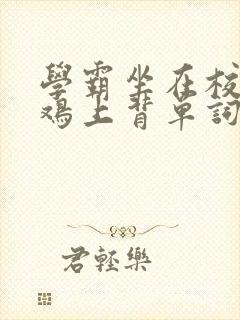 學霸坐在校
鸡上背單詞
君輕樂